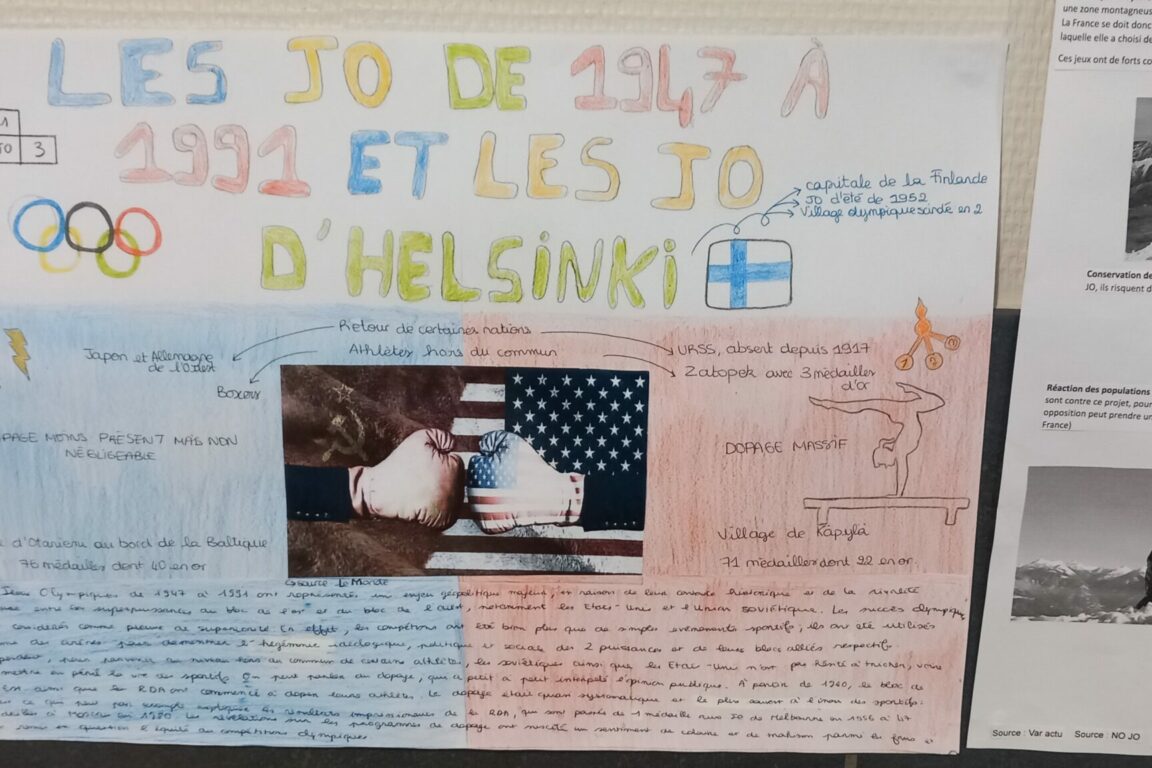 LES JO DE 1947 À
1991 ET LES JO
D'HELSINKI
1
TO 3
capitale de la Finlande
JO d'été de 1952
Village olympique scindé en 2
Retour de certaines nations
Athlètes hors du commun
Japon et Allemagne
de l'Ouest
Boxeurs
URSS, absent depuis 1917
Zatopek avec 3 médailles
d'or
PAGE MOINS PRÉSENT MAIS NON
NÉGLIGEABLE
DOPAGE MASSIF
d'Otaniemi au bord de la Baltique
76 médailles dont 40 en or
Village de Käpylä
71 médailles dont 22 en or
source Le Monde
Jeux Olympiques de 1947 à 1991 ont représenté un enjeu géopolitique majeur, en raison de leur contexte historique et de la rivalité
entre les superpuissances du bloc de l'est et du bloc de l'ouest, notamment les Etats-Unis et l'Union Soviétique. Les succès olympiques
considérés comme preuve de supériorité. En effet, les compétitions ont été bien plus que de simples évènements sportifs, ils ont été utilisés
comme des arènes pour démontrer l'hégémonie idéologique, politique et sociale des 2 puissances et de leurs blocs alliés respectifs.
pour parvenir au niveau hors du commun de certains athlètes, les soviétiques ainsi que les Etats-Unis n'ont pas hésité à tricher, voire
mettre en péril la vie des sportifs. On peut parler du dopage, qui a petit à petit interpelé l'opinion publique. A partir de 1960, le bloc de
Est ainsi que la RDA ont commencé à doper leurs athlètes. Le dopage était quasi systématique et le plus souvent à l'insu des sportifs.
ce qui peut par exemple expliquer les résultats impressionnants de la RDA, qui sont passés de 1 médaille aux JO de Melbourne en 1956 à 47
à Moscou en 1980. Les révélations sur les programmes de dopage ont suscité un sentiment de colère et de trahison parmi les fans et
en question l'équité des compétitions olympiques.
une zone montagneus
La France se doit donc
laquelle elle a choisi de
Ces jeux ont de forts co
Conservation de
JO, ils risquent d
Réaction des populations
sont contre ce projet, pour
opposition peut prendre un
France)
Source : Var actu Source : NO JO